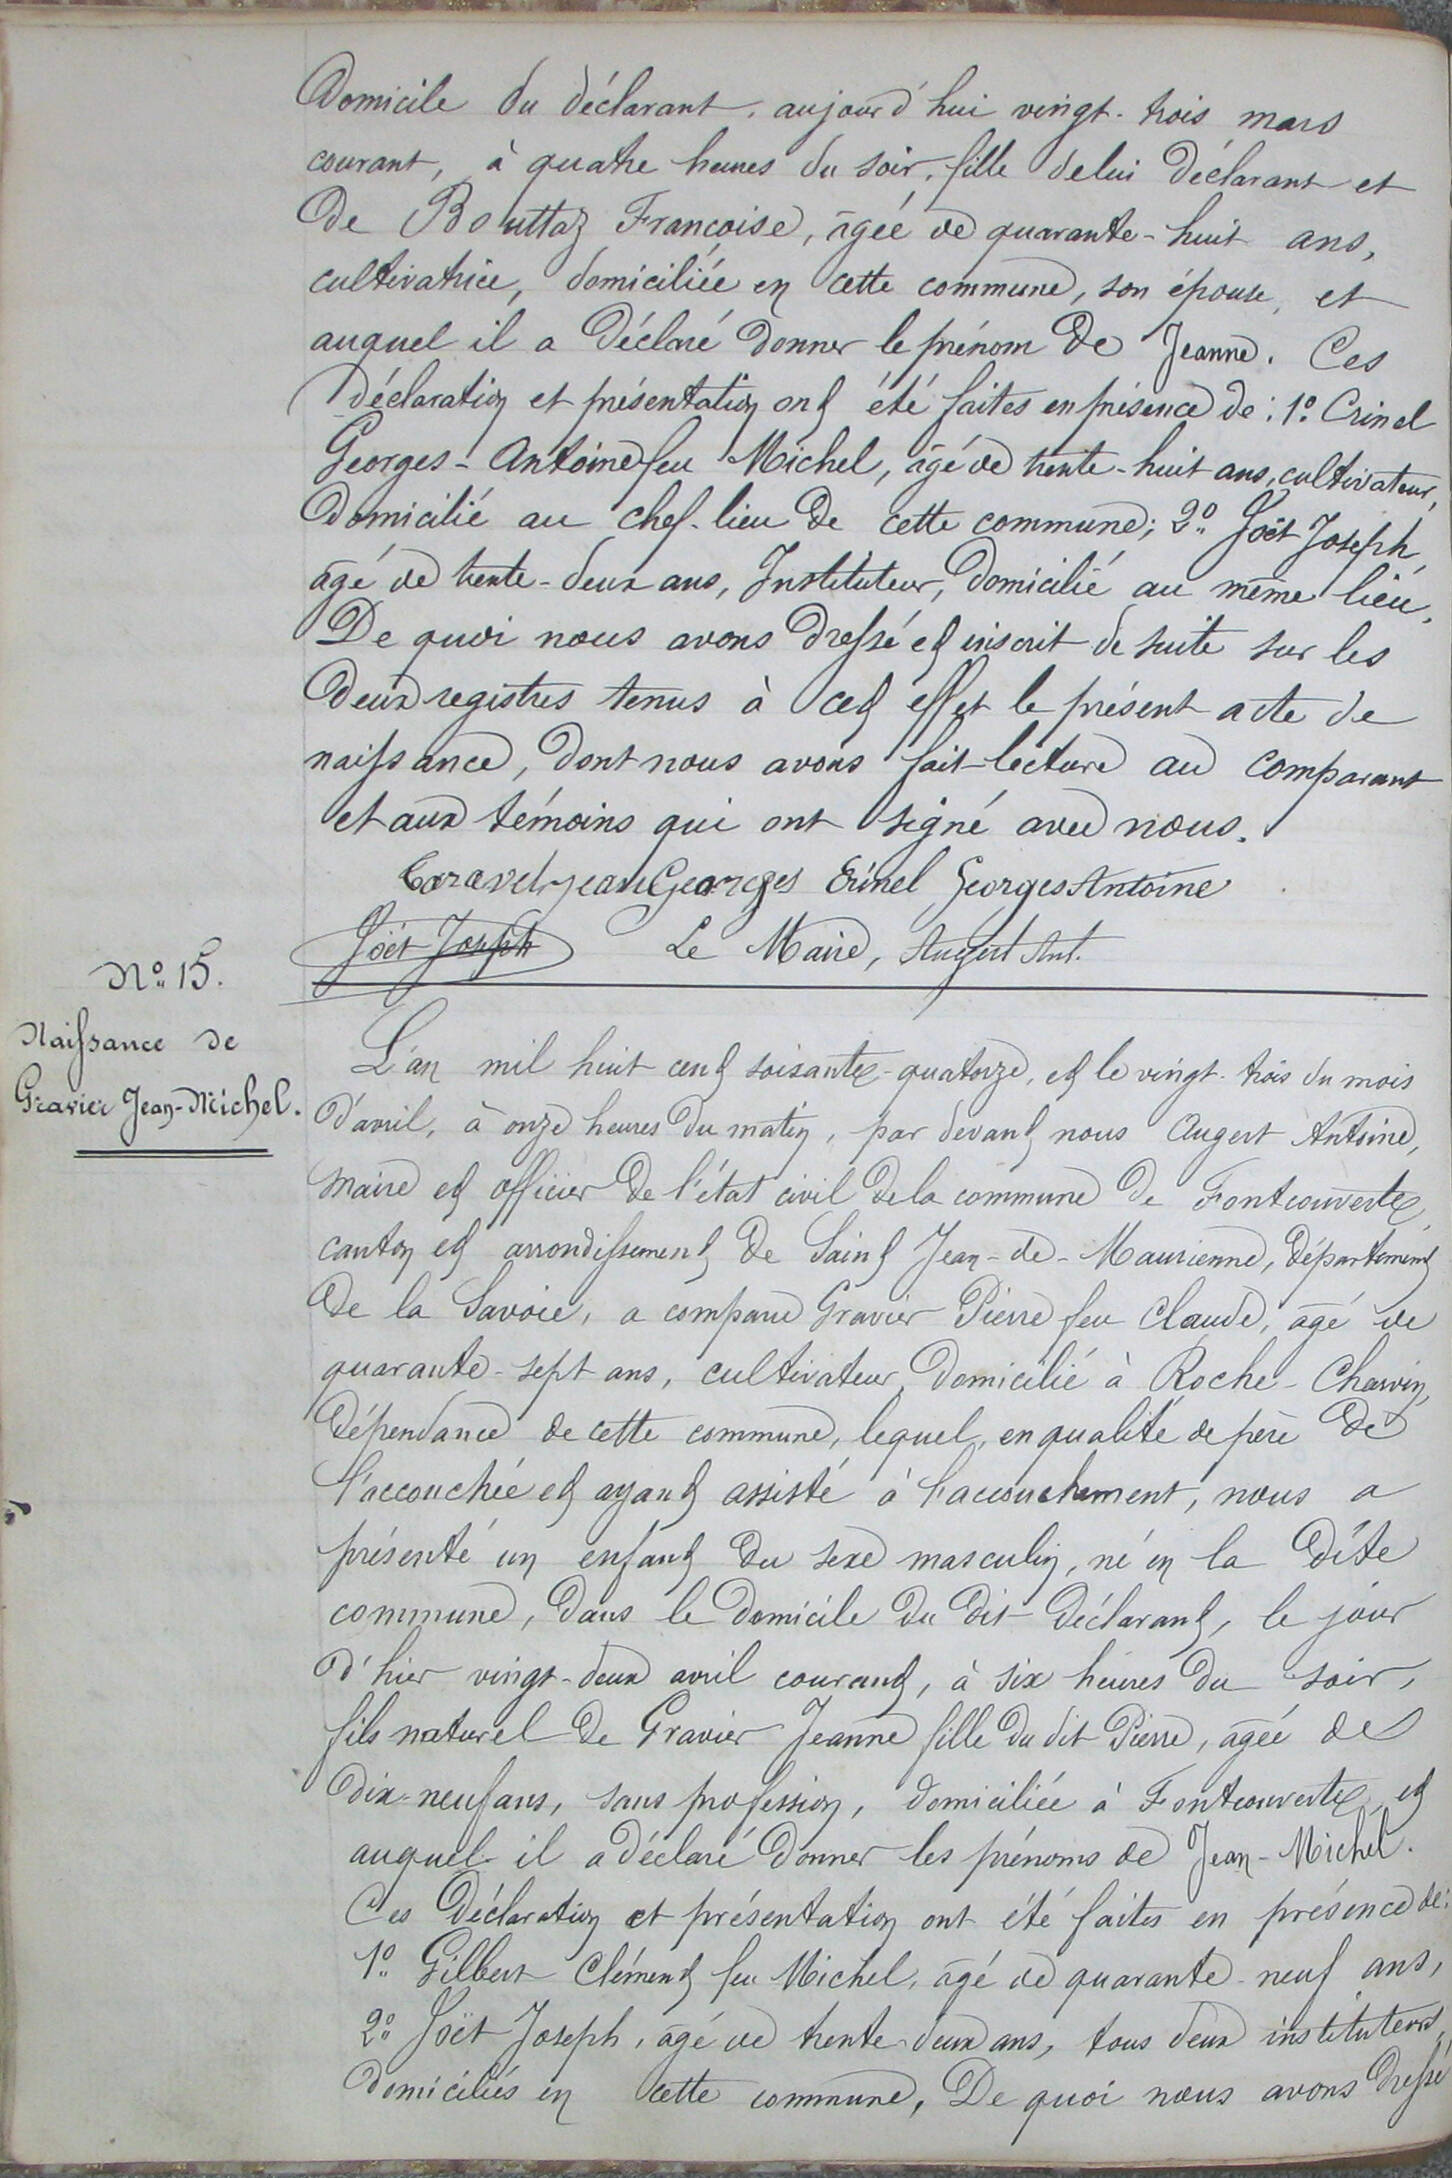 Domicile du déclarant, aujourd'hui vingt-trois mars
courant, à quatre heures du soir, fille de lui déclarant et
de Bouttaz Françoise, âgée de quarante-huit ans,
cultivatrice, domiciliée en cette commune, son épouse, et
auquel il a déclaré donner le prénom de Jeanne. Ces
déclaration et présentation ont été faites en présence de: 1º Crinel
Georges-Antoine feu Michel, âgé de trente-huit ans, cultivateur,
domicilié au chef-lieu de cette commune; 2º Joët Joseph,
âgé de trente-deux ans, Instituteur, domicilié au même lieu.
De quoi nous avons dressé et inscrit de suite sur les
deux registres tenus à cet effet le présent acte de
naissance, dont nous avons fait lecture au comparant
et aux témoins qui ont signé avec nous.
Caravel Jean Georges Crinel Georges Antoine
Joët Joseph Le Maire, Augert Ant.
Nº 15.
Naissance de
Gravier Jean-Michel.
L'an mil huit cent soixante-quatorze, et le vingt-trois du mois
d'avril, à onze heures du matin, par devant nous Augert Antoine,
Maire et officier de l'état civil de la commune de Fontcouverte,
canton et arrondissement de Saint Jean-de-Maurienne, département
de la Savoie, a comparu Gravier Pierre feu Claude, âgé de
quarante-sept ans, cultivateur, domicilié à Roche-Charvin,
dépendance de cette commune, lequel, en qualité de père de
l'accouchée et ayant assisté à l'accouchement, nous a
présenté un enfant du sexe masculin, né en la dite
commune, dans le domicile du dit déclarant, le jour
d'hier vingt-deux avril courant, à six heures du soir,
fils naturel de Gravier Jeanne fille du dit Pierre, âgée de
dix-neuf ans, sans profession, domiciliée à Fontcouverte et
auquel il a déclaré donner les prénoms de Jean-Michel.
Ces déclaration et présentation ont été faites en présence de:
1º Gilbert Clément feu Michel, âgé de quarante-neuf ans,
2º Joët Joseph, âgé de trente-deux ans, tous deux instituteurs,
domiciliés en cette commune, De quoi nous avons dressé